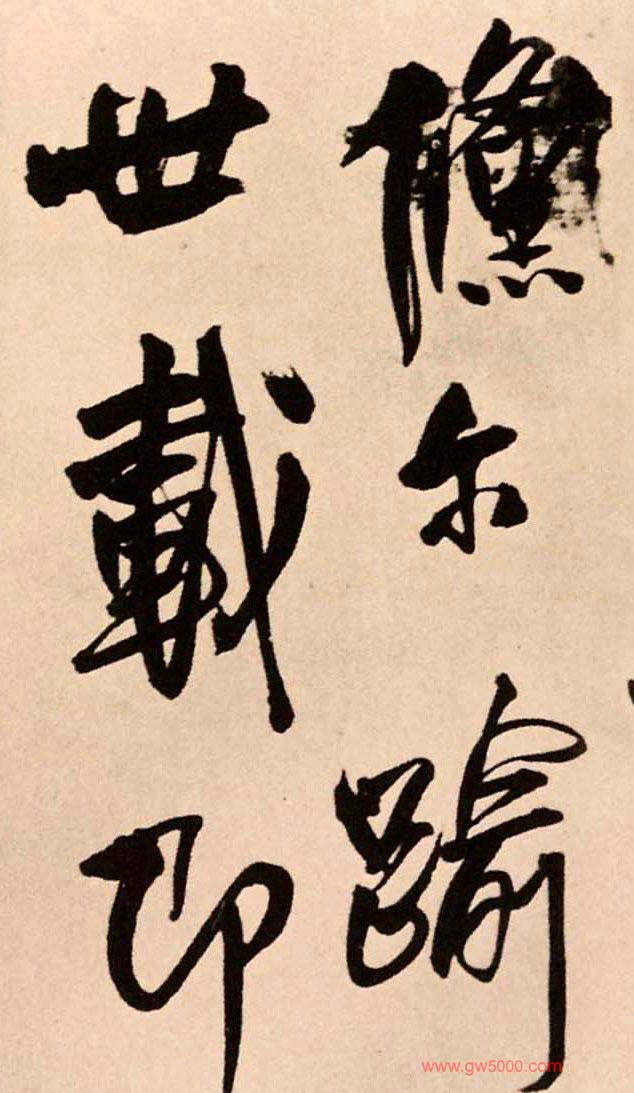 儵尔踰
丗載即
www.gw5000.com